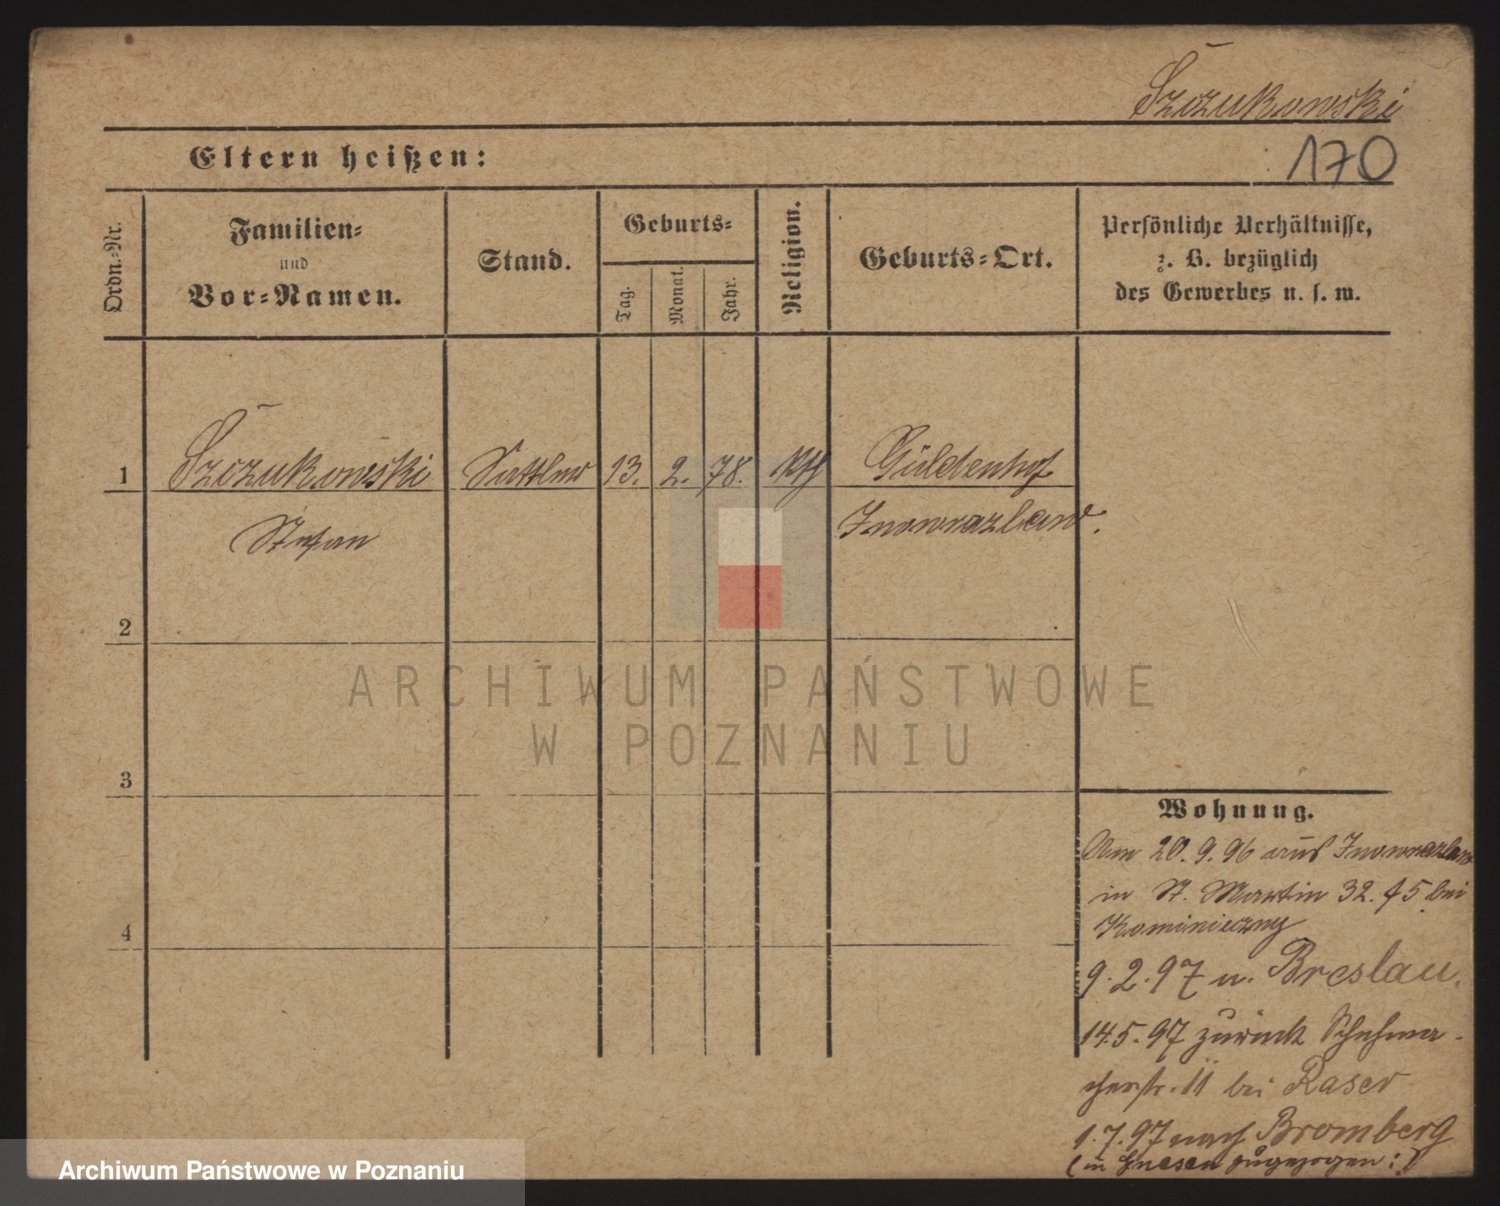 Szczukowski
Eltern heißen:
170
Ordn.-Nr.
Familien-
und
Vor-Namen.
Stand.
Geburts-
Tag.
Monat.
Jahr.
Religion.
Geburts-Ort.
Persönliche Verhältnisse,
z. B. bezüglich
des Gewerbes u. s. w.
1
Szczukowski
Sattler
13.
2.
78.
kth
Güldenhof
Stefan
Inowrazlaw.
2
3
4
ARCHIWUM PAŃSTWOWE
W POZNANIU
Wohnung.
Am 20.9.96 aus Inowrazlaw
in St. Martin 32. bei
Kominiezny
9.2.97 n. Breslau.
14.5.97 zurück Schuhma-
cherstr. 11 bei Raser
1.7.97 nach Bromberg
(in Gnesen zugezogen:)
Archiwum Państwowe w Poznaniu